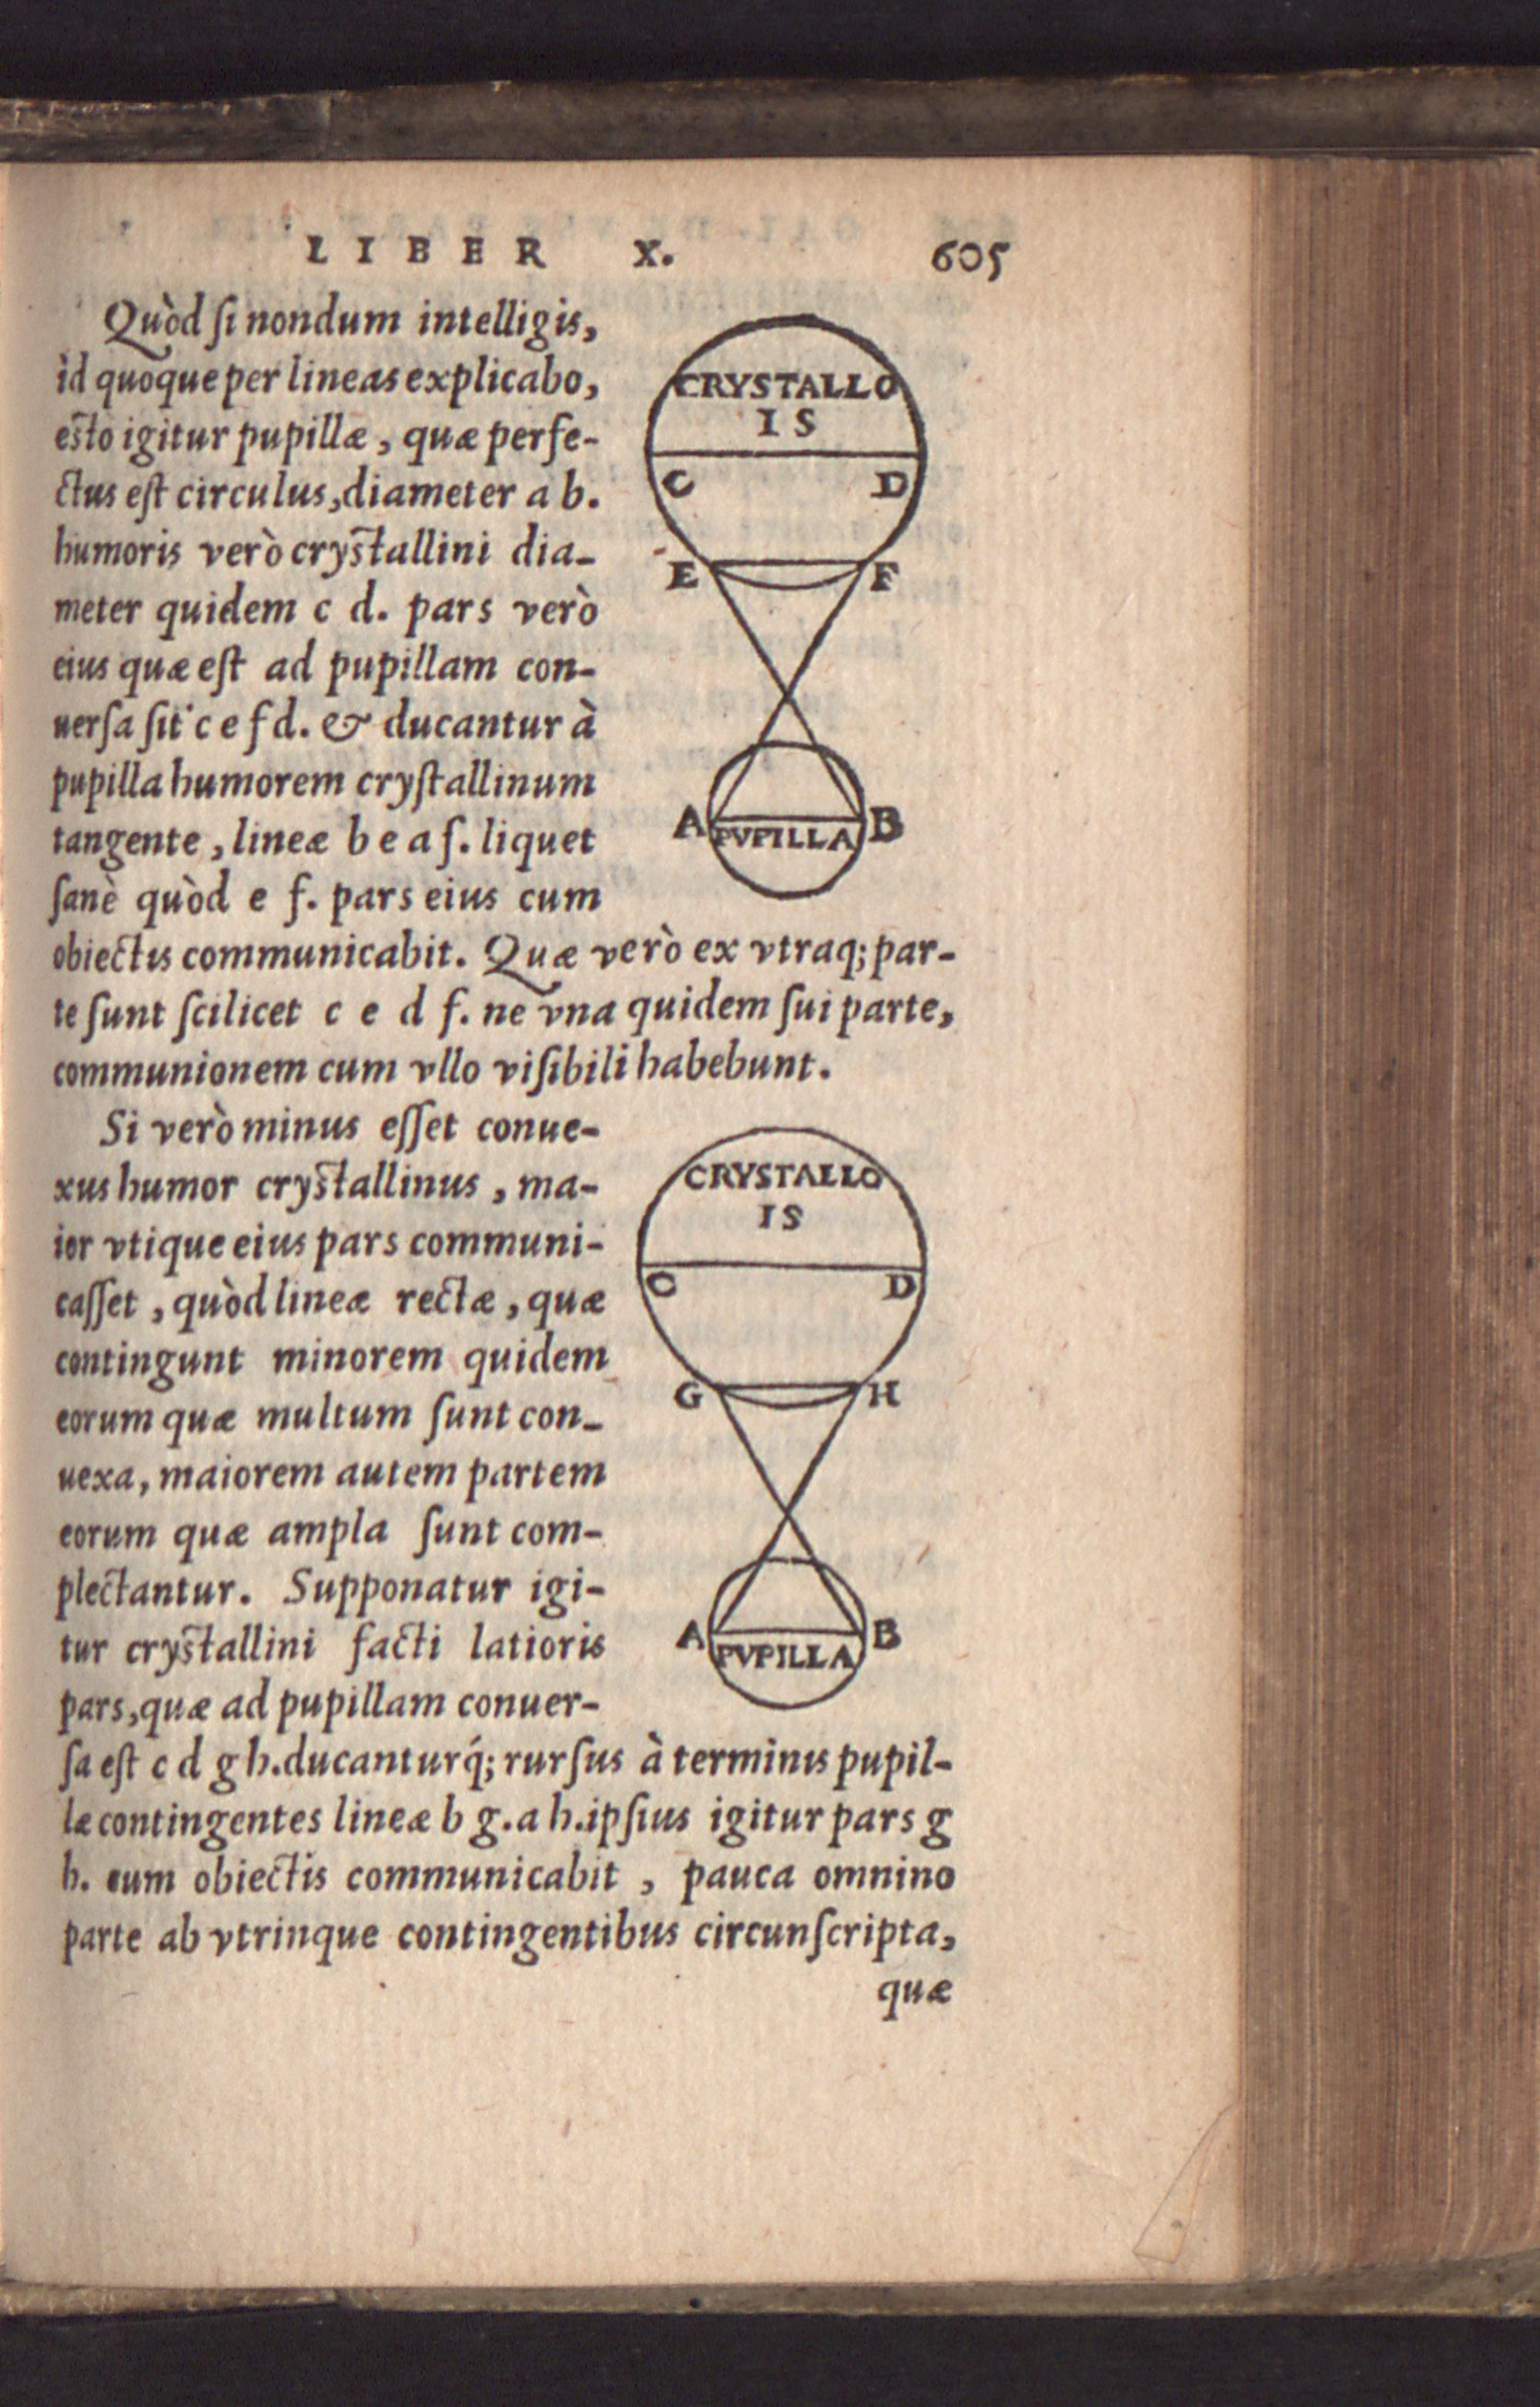 LIBER X. 605
Quòd ſi nondum intelligis,
id quoque per lineas explicabo,
eſto igitur pupillæ, quæ perfe-
ctus eſt circulus, diameter a b.
humoris verò cryſtallini dia-
meter quidem c d. pars verò
eius quæ eſt ad pupillam con-
uerſa ſit c e f d. & ducantur à
pupilla humorem cryſtallinum
tangente, lineæ b e a ſ. liquet
ſanè quòd e f. pars eius cum
obiectis communicabit. Quæ verò ex vtraq; par-
te ſunt ſcilicet c e d f. ne vna quidem ſui parte,
communionem cum vllo viſibili habebunt.
CRYSTALLO
IS
C D
E F
A B
PVPILLA
Si verò minus eſſet conue-
xus humor cryſtallinus, ma-
ior vtique eius pars communi-
caſſet, quòd lineæ rectæ, quæ
contingunt minorem quidem
eorum quæ multum ſunt con-
uexa, maiorem autem partem
eorum quæ ampla ſunt com-
plectantur. Supponatur igi-
tur cryſtallini facti latioris
pars, quæ ad pupillam conuer-
ſa eſt c d g h. ducanturq́; rurſus à terminis pupil-
læ contingentes lineæ b g. a h. ipſius igitur pars g
h. cum obiectis communicabit, pauca omnino
parte ab vtrinque contingentibus circunſcripta,
quæ
CRYSTALLO
IS
C D
G H
A B
PVPILLA